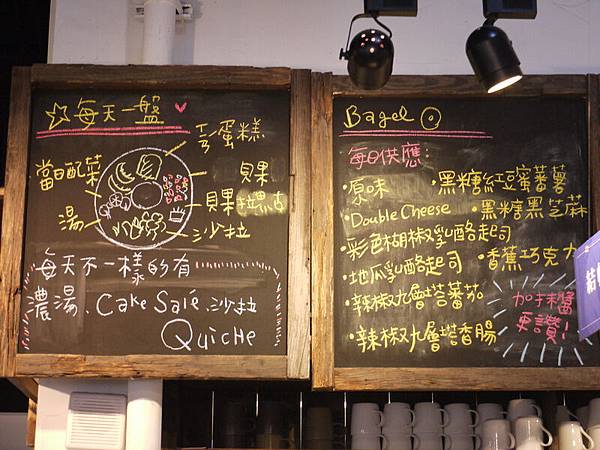 ☆每天一盤♡
鹹蛋糕
當日配菜
貝果
湯
沙拉
每天不一樣的有
濃湯、Cake Salé、沙拉
Quiche
Bagel
每日供應:
·原味
·黑糖紅豆蜜蕃薯
·Double Cheese
·黑糖黑芝麻
·彩色胡椒乳酪起司
·香蕉巧克力
·地瓜乳酪起司
·辣椒九層塔蕃茄
·辣椒九層塔香腸
加抹醬
更讚!